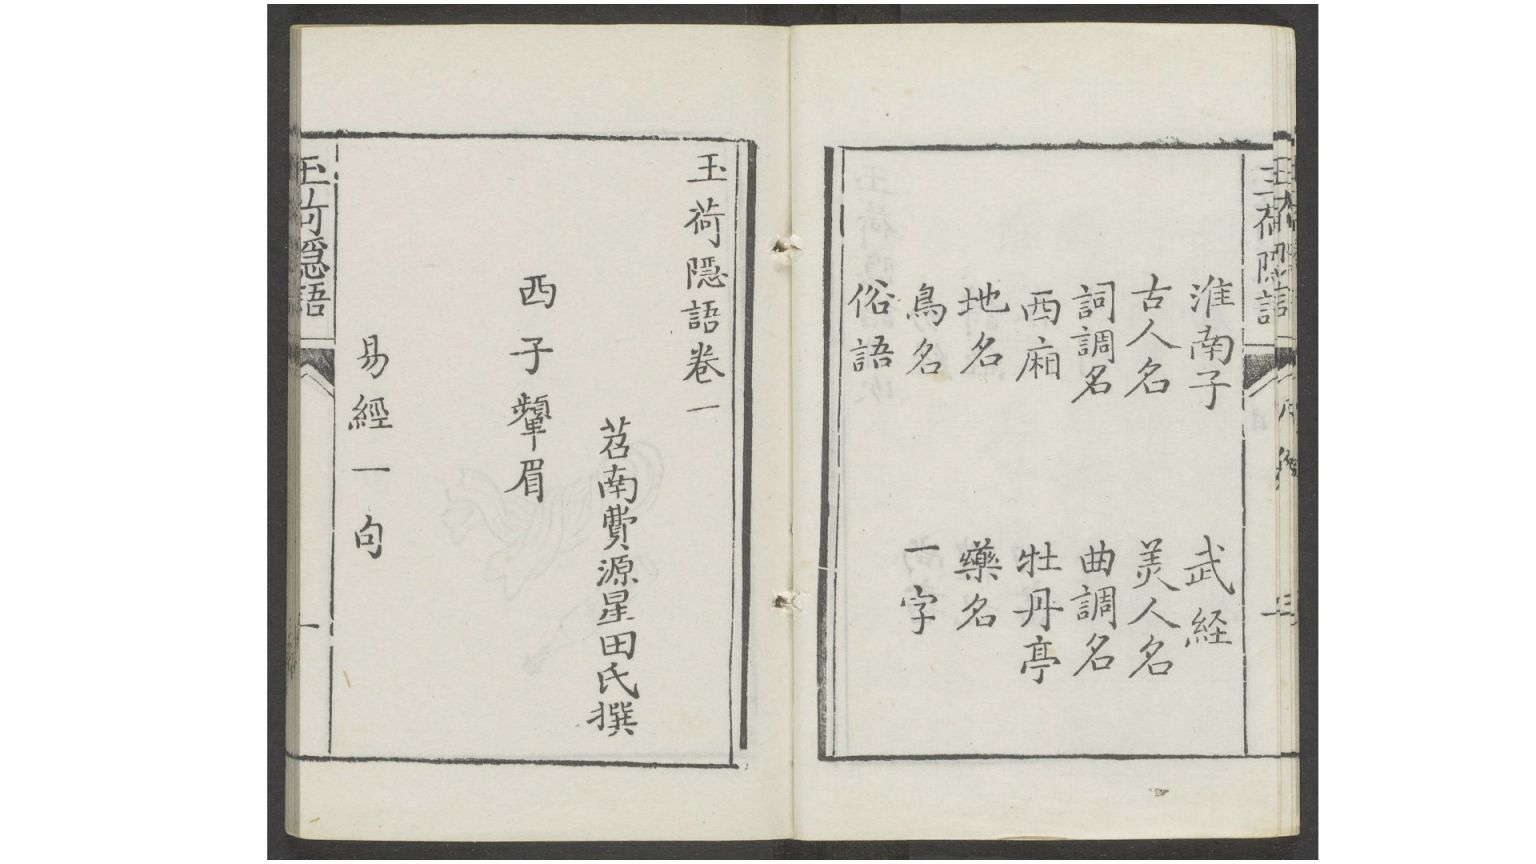 淮南子　武経
古人名　美人名
詞調名　曲調名
西廂　牡丹亭
地名　藥名
鳥名　一字
俗語
玉荷隱語卷一
苕南費源星田氏撰
西子顰眉
易經一句
玉荷隱語
一